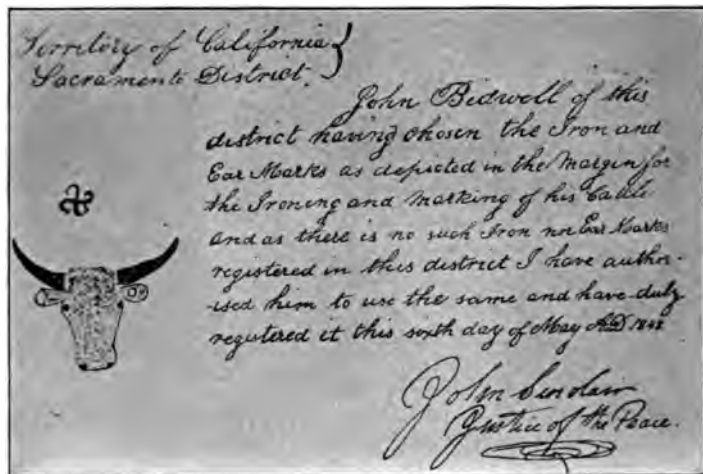 Territory of California
Sacramento District.
John Bidwell of this
district having chosen the Iron and
Ear Marks as depicted in the Margin for
the Ironing and Marking of his Cattle
and as there is no such Iron nor Ear Marks
registered in this district I have author-
ised him to use the same and have duly
registered it this sixth day of May AD 1848
John Sinclair
Justice of the Peace.